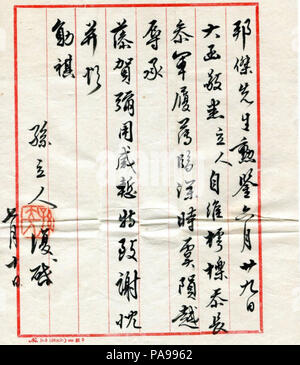 邦傑先生勳鑒六月廿九日
大函敬悉立人自維樗櫟忝長
參軍履薄臨深時虞隕越
辱承
藻賀彌用感慙特致謝忱
并頌
勛祺
孫立人復啟
月十日
PA9962